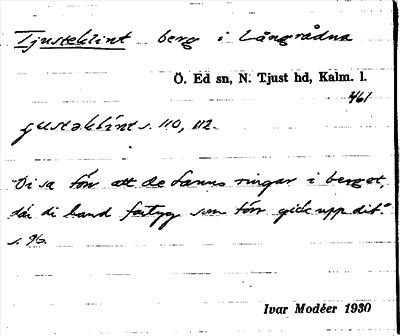 Tjusteklint berg i Långrådna
Ö. Ed sn, N. Tjust hd, Kalm. l.
461
gustaklint s. 110, 112.
"Di sa förr att de fanns ringar i berget,
där di band fartyg som förr gick upp dit."
s. 96.
Ivar Modéer 1930